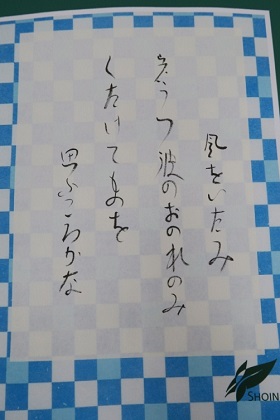 風をいたみ
岩うつ波のおのれのみ
くたけてものを
思ふころかな
SHOIN